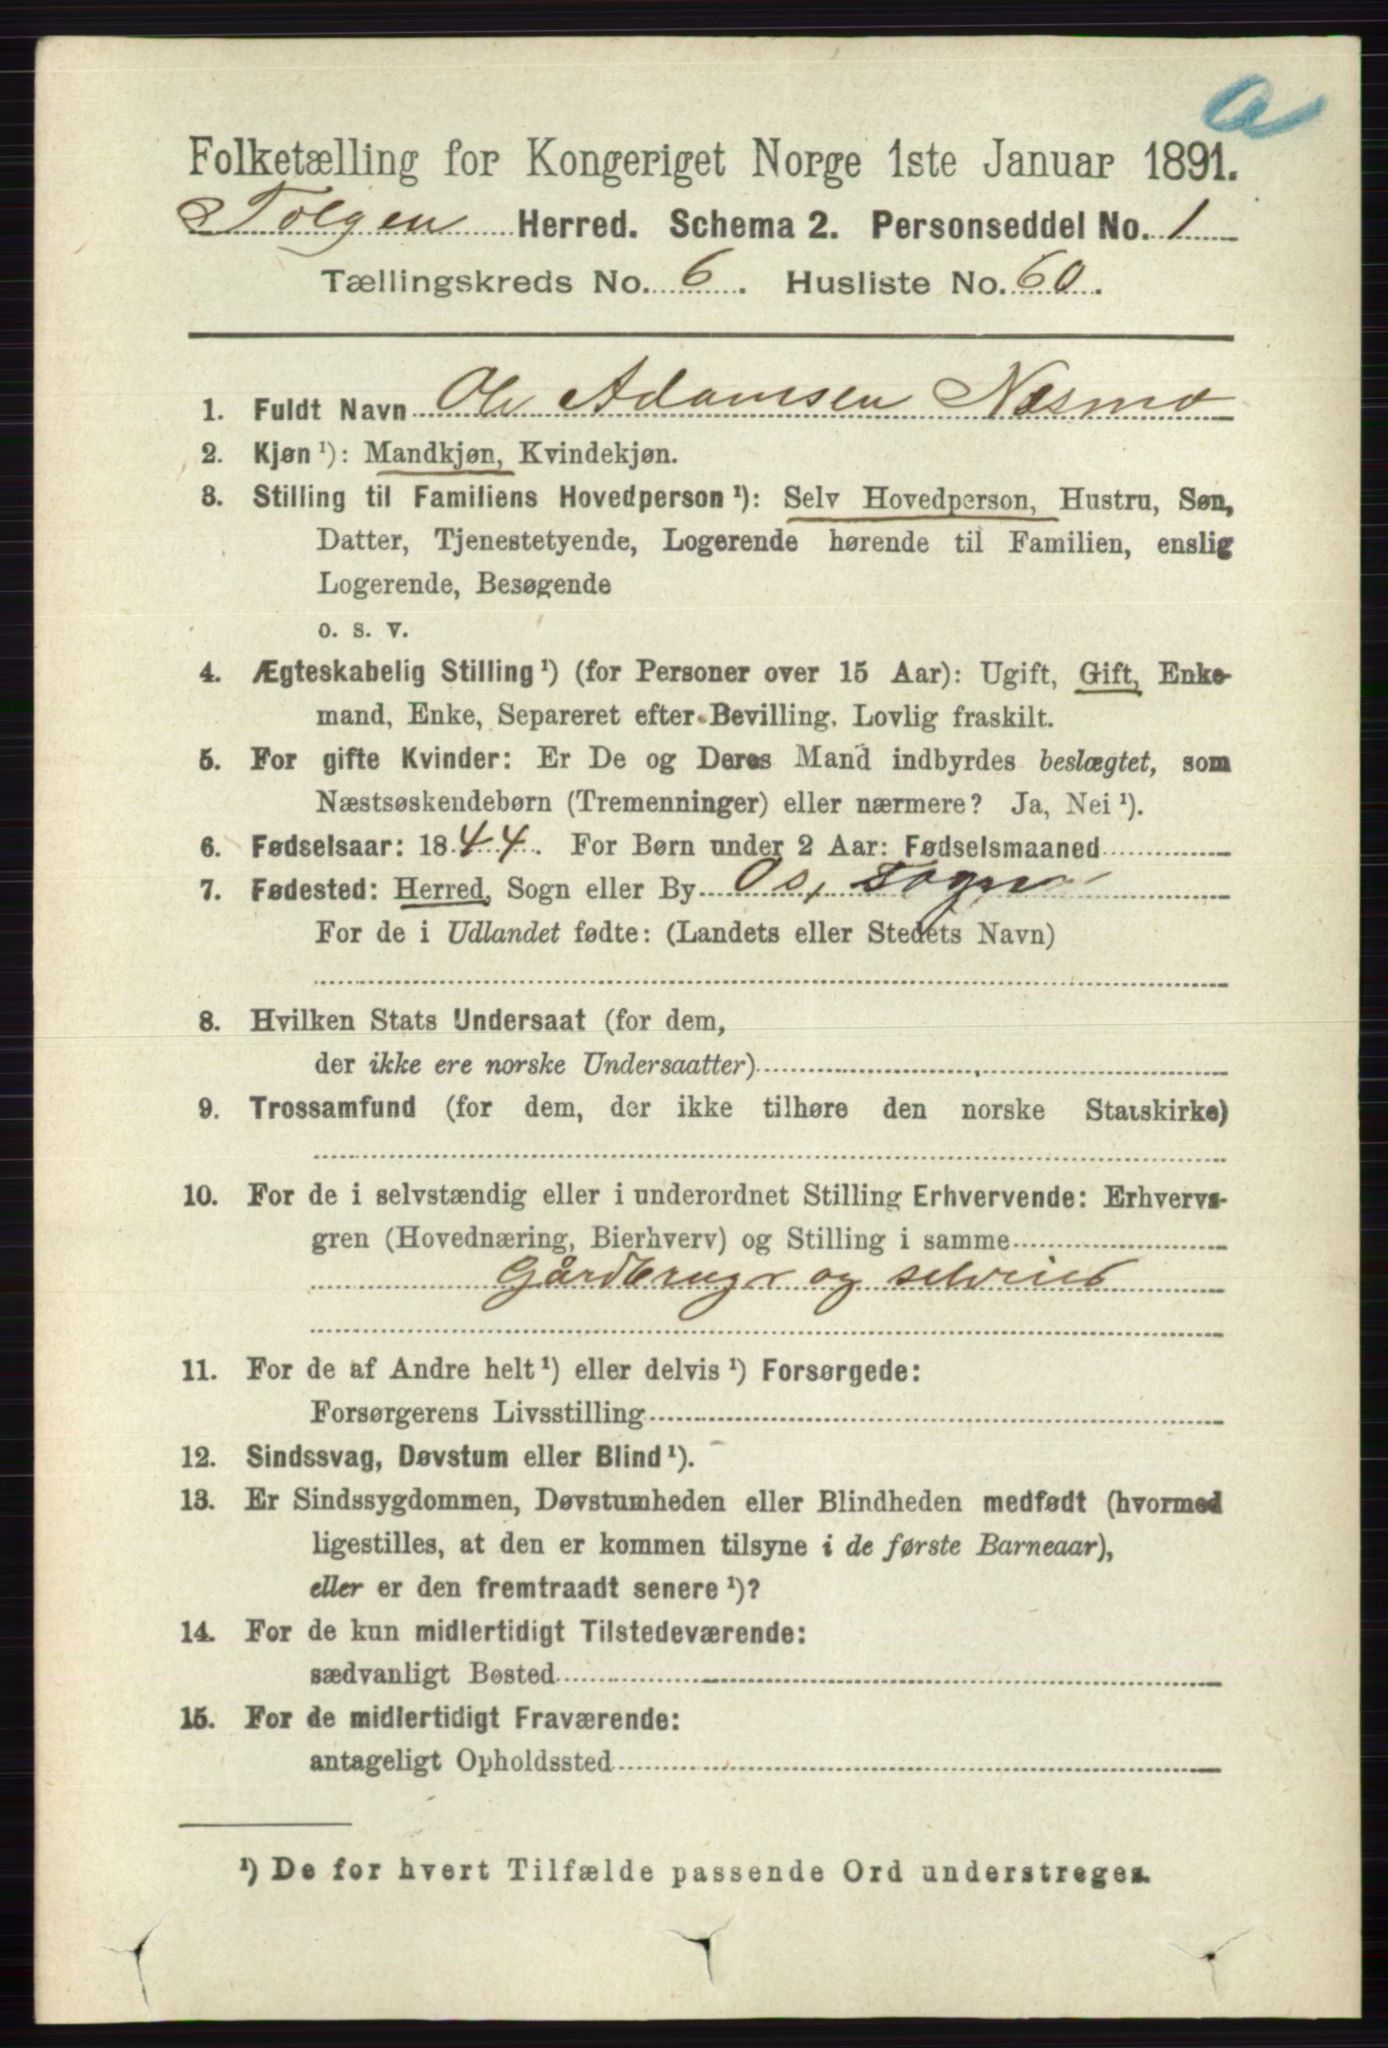 a
Folketælling for Kongeriget Norge 1ste Januar 1891.
Tolgen Herred. Schema 2. Personseddel No. 1
Tællingskreds No. 6. Husliste No. 60.
1. Fuldt Navn Ole Adamsen Næsmo
2. Kjøn ¹): Mandkjøn, Kvindekjøn.
3. Stilling til Familiens Hovedperson ¹): Selv Hovedperson, Hustru, Søn,
Datter, Tjenestetyende, Logerende hørende til Familien, enslig
Logerende, Besøgende
o. s. v.
4. Ægteskabelig Stilling ¹) (for Personer over 15 Aar): Ugift, Gift, Enke-
mand, Enke, Separeret efter Bevilling. Lovlig fraskilt.
5. For gifte Kvinder: Er De og Deres Mand indbyrdes beslægtet, som
Næstsøskendebørn (Tremenninger) eller nærmere? Ja, Nei ¹).
6. Fødselsaar: 1844. For Børn under 2 Aar: Fødselsmaaned
7. Fødested: Herred, Sogn eller By Os, sogn
For de i Udlandet fødte: (Landets eller Stedets Navn)
8. Hvilken Stats Undersaat (for dem,
der ikke ere norske Undersaatter)
9. Trossamfund (for dem, der ikke tilhøre den norske Statskirke)
10. For de i selvstændig eller i underordnet Stilling Erhvervende: Erhvervs-
gren (Hovednæring, Bierhverv) og Stilling i samme
Gårdbruger og selveier
11. For de af Andre helt ¹) eller delvis ¹) Forsørgede:
Forsørgerens Livsstilling
12. Sindssvag, Døvstum eller Blind ¹).
13. Er Sindssygdommen, Døvstumheden eller Blindheden medfødt (hvormed
ligestilles, at den er kommen tilsyne i de første Barneaar),
eller er den fremtraadt senere ¹)?
14. For de kun midlertidigt Tilstedeværende:
sædvanligt Bosted
15. For de midlertidigt Fraværende:
antageligt Opholdssted
¹) De for hvert Tilfælde passende Ord understreges.